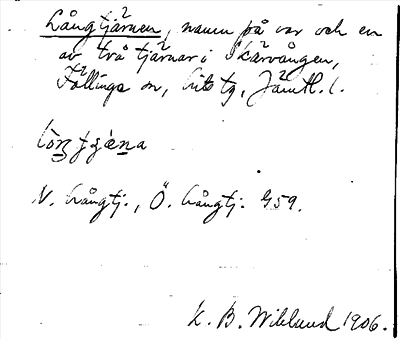 Långtjärnen, namn på var och en
av två tjärnar i Skärvången,
Föllinge sn, Lits tg, Jämtl. l.
V. Långtj., Ö. Långtj. G59.
K. B. Wiklund 1906.